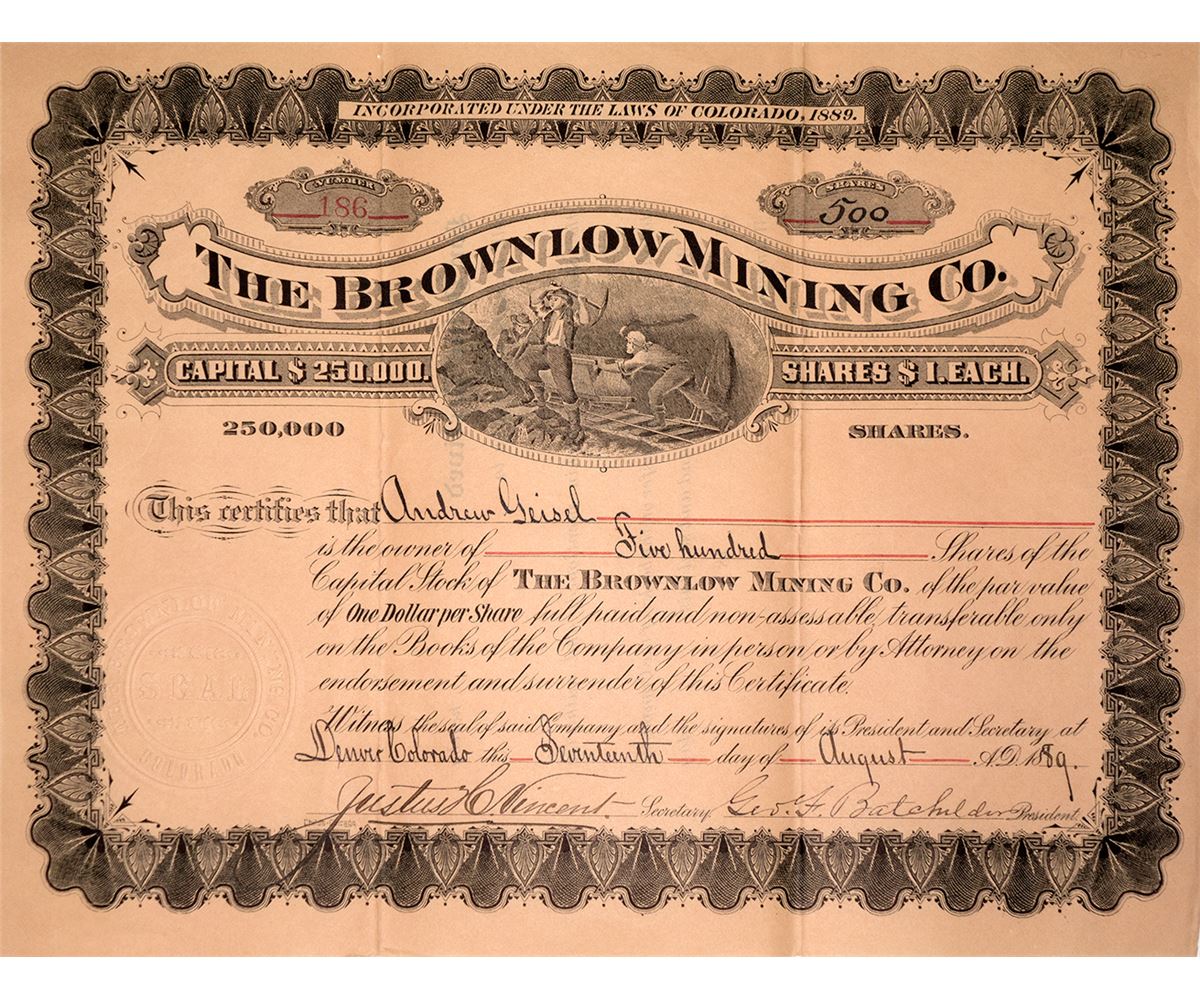 INCORPORATED UNDER THE LAWS OF COLORADO, 1889.
NUMBER
186
SHARES
500
THE BROWNLOW MINING CO.
CAPITAL $ 250,000.
SHARES $ 1. EACH.
250,000 SHARES.
This certifies that Andrew Geisel
is the owner of Five hundred Shares of the
Capital Stock of THE BROWNLOW MINING CO. of the par value
of One Dollar per Share full paid and non-assessable, transferable only
on the Books of the Company in person or by Attorney on the
endorsement and surrender of this Certificate.
Witness the seal of said Company and the signatures of its President and Secretary at
Denver Colorado this Seventeenth day of August A.D. 1889.
Justus C Vincent Secretary. Geo. F. Batchelder President.
THE BROWNLOW MINING CO.
SEAL
COLORADO